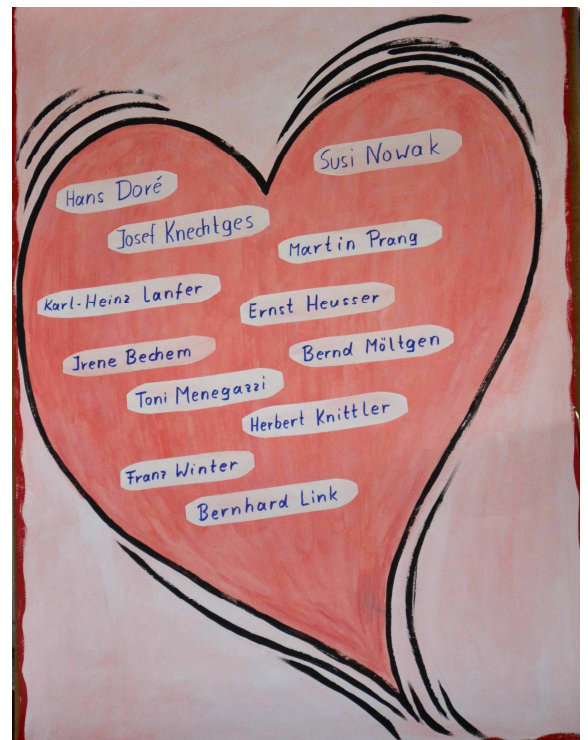 Susi Nowak
Hans Doré
Josef Knechtges
Martin Prang
Karl-Heinz Lanfer
Ernst Heusser
Irene Bechem
Bernd Möltgen
Toni Menegazzi
Herbert Knittler
Franz Winter
Bernhard Link